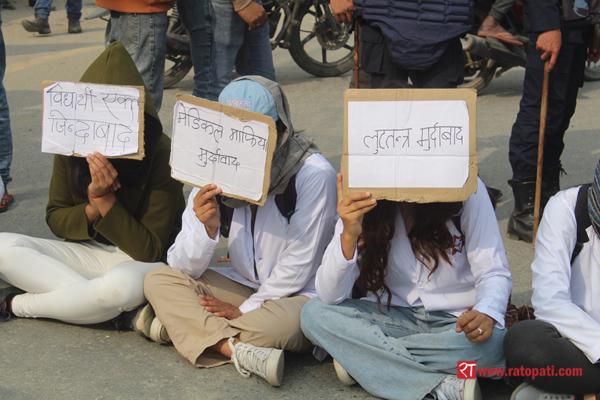 विद्यार्थी एकता
जिन्दाबाद
मेडिकल माफिया
मुर्दावाद
लुटतन्त्र मुर्दाबाद
रा www.ratopati.com